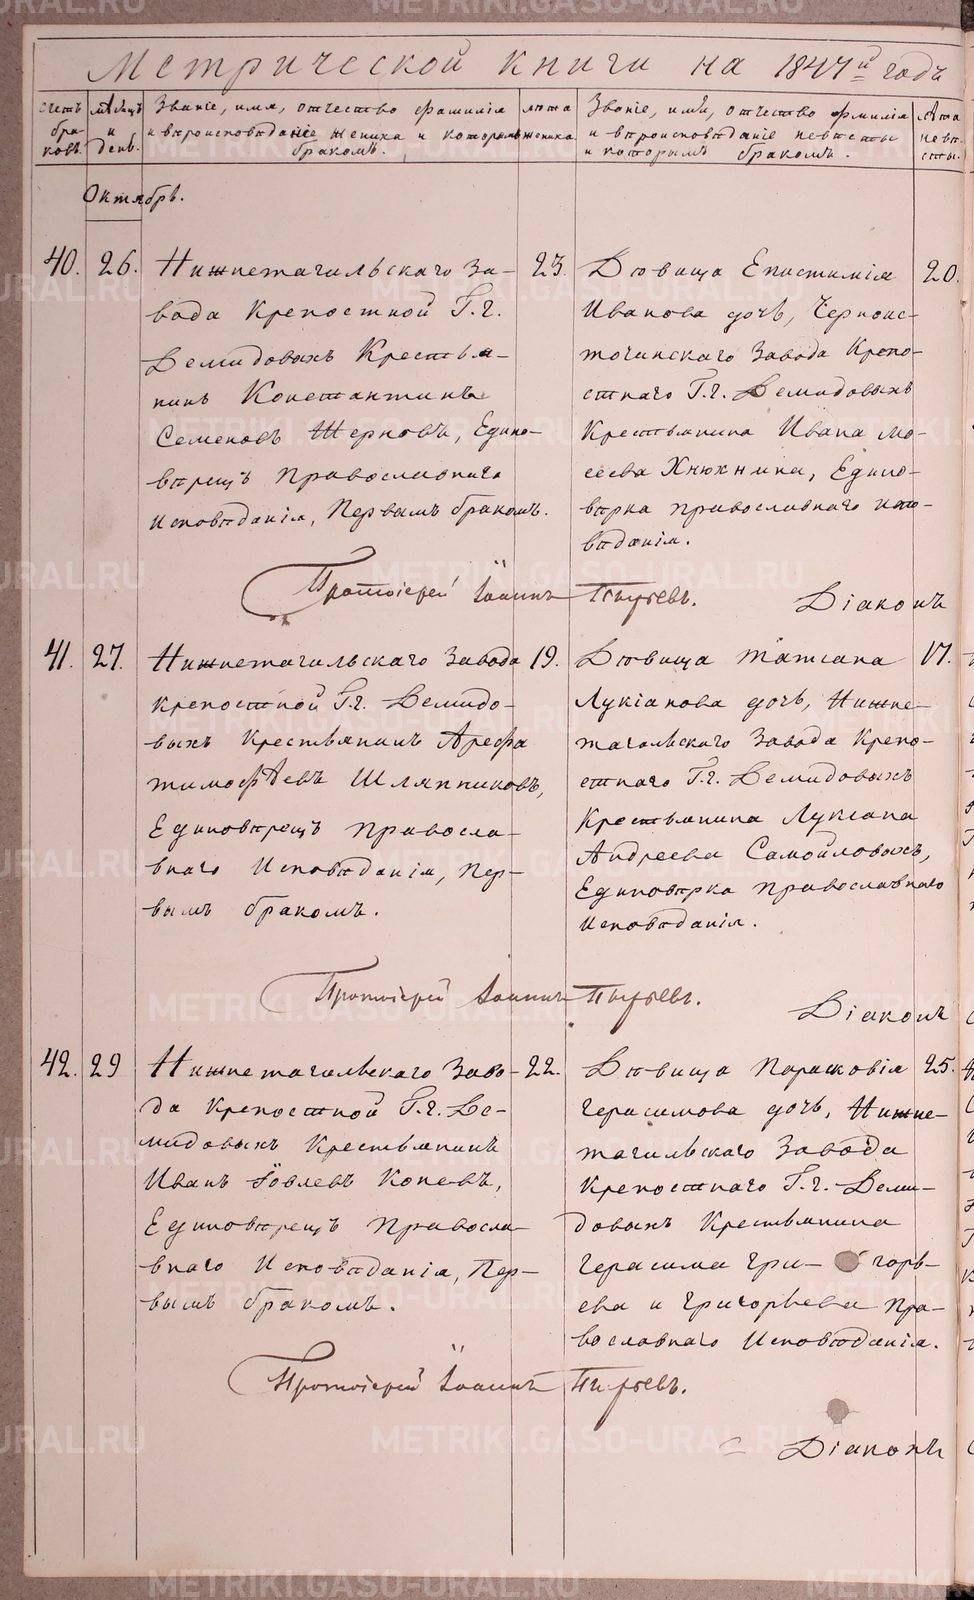 Метрической книги на 1847й годъ
счетъ браковъ.
мѣсяцъ и день.
Званіе, имя, отчество фамилія
и вѣроисповѣданіе жениха и которымъ
бракомъ.
лѣта
жениха.
Званіе, имя, отчество фамилія
и вѣроисповѣданіе невѣсты
и которымъ бракомъ.
лѣта
невѣсты.
Октябрь.
40.
26.
Нижнетагильскаго За-
вода Крепостной Г.г.
Демидовыхъ Крестья-
нинъ Константинъ
Семеновъ Жерновъ, Едино-
вѣрецъ Православнаго
Исповѣданія, Первымъ бракомъ.
23.
Дѣвица Епистимія
Иванова дочь, Черноис-
точинскаго Завода Крепо-
стнаго Г.г. Демидовыхъ
Крестьянина Ивана Мо-
сеева Хнюхнина, Едино-
вѣрка православнаго испо-
вѣданія.
20.
Протоіерей Іоаннъ Пырьевъ.
Діаконъ
41.
27.
Нижнетагильскаго Завода
крепостной Г.г. Демидо-
выхъ Крестьянинъ Арефа
тимофѣевъ Шляпниковъ,
Единовѣрецъ Правосла-
внаго Исповѣданія, Пер-
вымъ бракомъ.
19.
Дѣвица татіана
Лукіанова дочь, Нижне-
тагильскаго Завода Крепо-
стнаго Г.г. Демидовыхъ
Крестьянина Лукіана
Андреева Самойловыхъ,
Единовѣрка православнаго
Исповѣданія.
17.
Протоіерей Іоаннъ Пырьевъ.
Діаконъ
42.
29
Нижнетагильскаго Заво-
да Крепостной Г.г. Де-
мидовыхъ Крестьянинъ
Иванъ Іовлевъ Коневъ,
Единовѣрецъ Правосла-
внаго Исповѣданія, Пер-
вымъ бракомъ.
22.
Дѣвица Парасковія
Герасимова дочь, Нижне-
тагильскаго Завода
Крепостнаго Г.г. Деми-
довыхъ Крестьянина
Герасима Гри- горь-
ева и Григорьева Пра-
вославнаго Исповѣданія.
25.
Протоіерей Іоаннъ Пырьевъ.
Діаконъ
METRIKI.GASO-URAL.RU